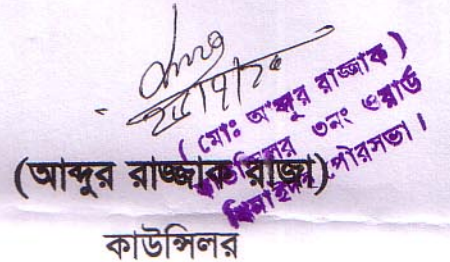 (মোঃ আব্দুর রাজ্জাক)
কাউন্সিলর ৩নং ওয়ার্ড
পৌরসভা।
(আব্দুর রাজ্জাক রাজা)
কাউন্সিলর